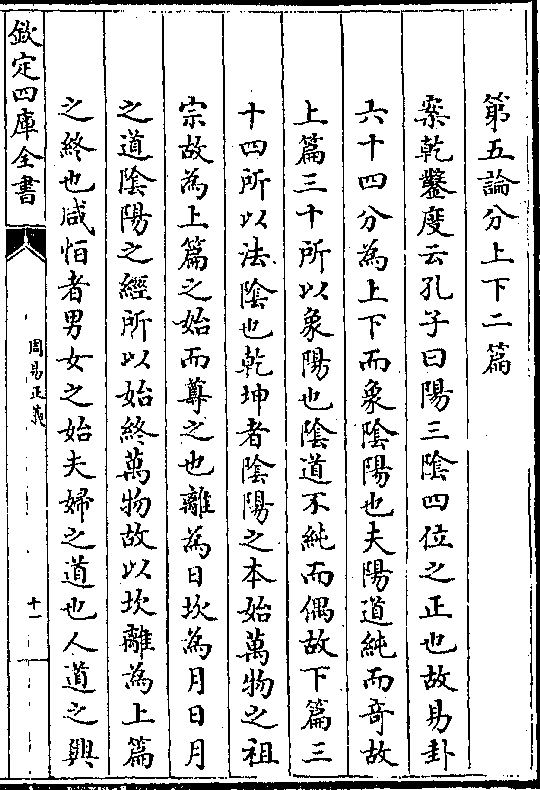 第五論分上下二篇
案乾鑿度云孔子曰陽三陰四位之正也故易卦
六十四分為上下而象陰陽也夫陽道純而竒故
上篇三十所以象陽也陰道不純而偶故下篇三
十四所以法陰也乾坤者陰陽之本始萬物之祖
宗故為上篇之始而尊之也離為日坎為月日月
之道陰陽之經所以始終萬物故以坎離為上篇
之終也咸恒者男女之始夫婦之道也人道之興
欽定四庫全書
周易正義
十一